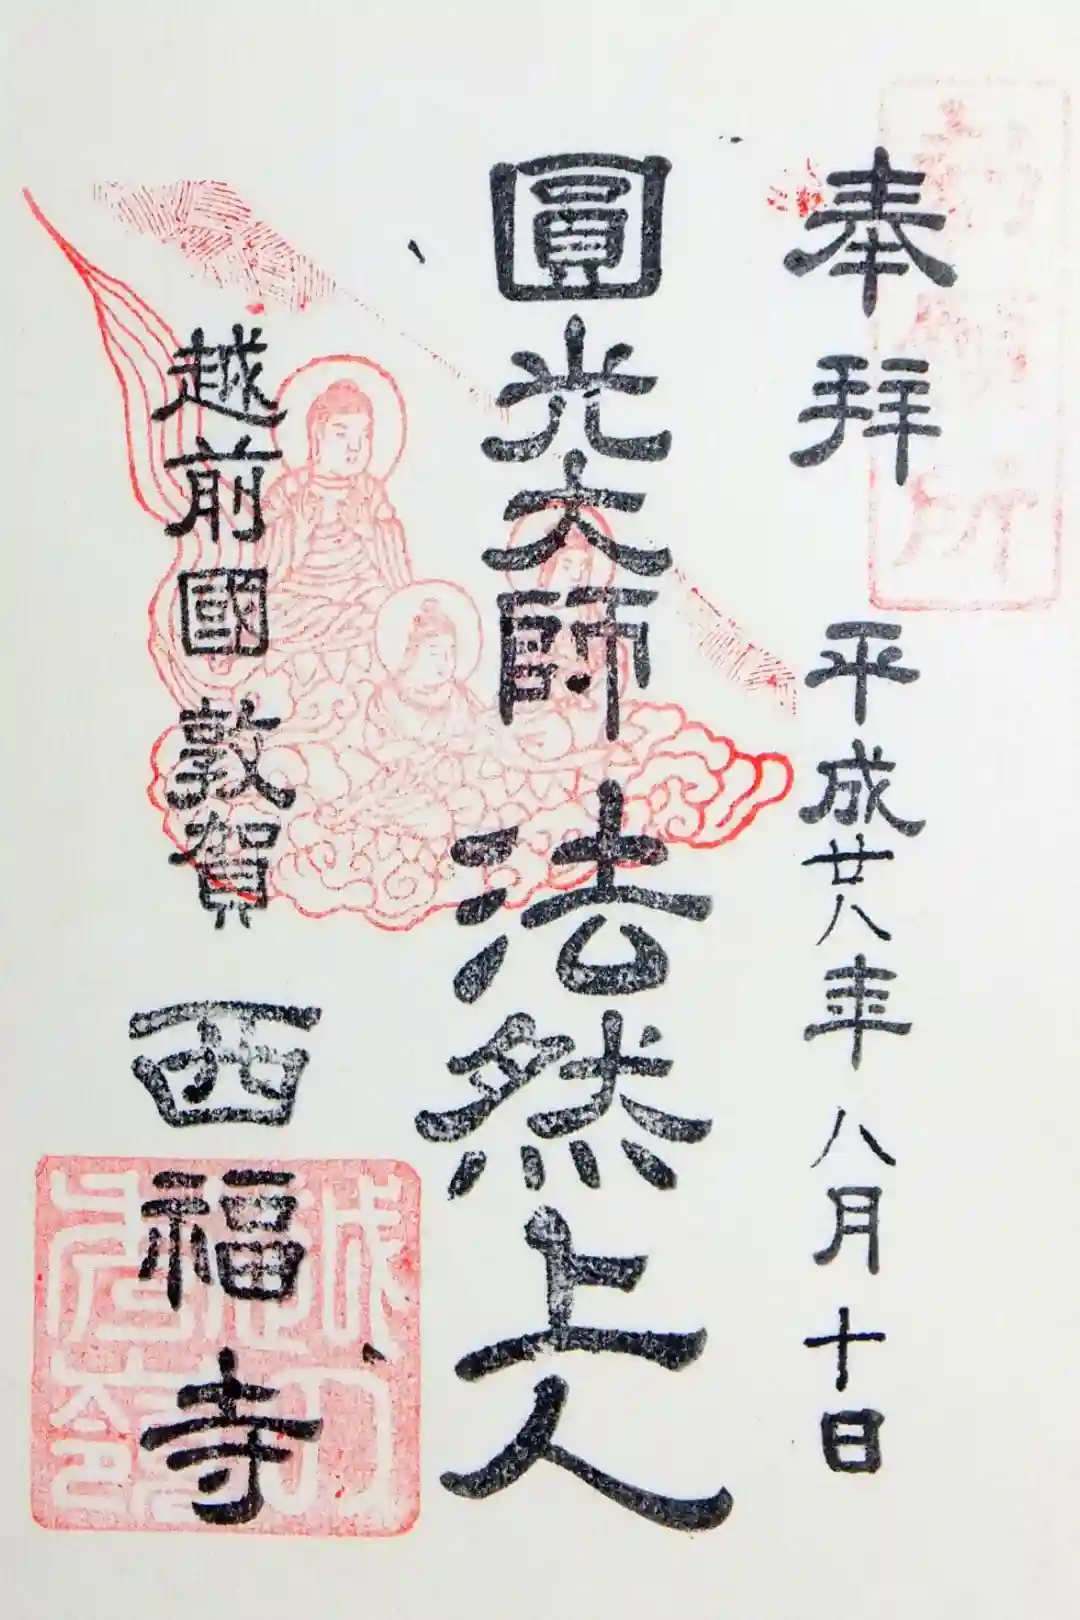 奉拜 平成廿八年 八月 十日
圓光大師 法然上人
越前國 敦賀 西福寺